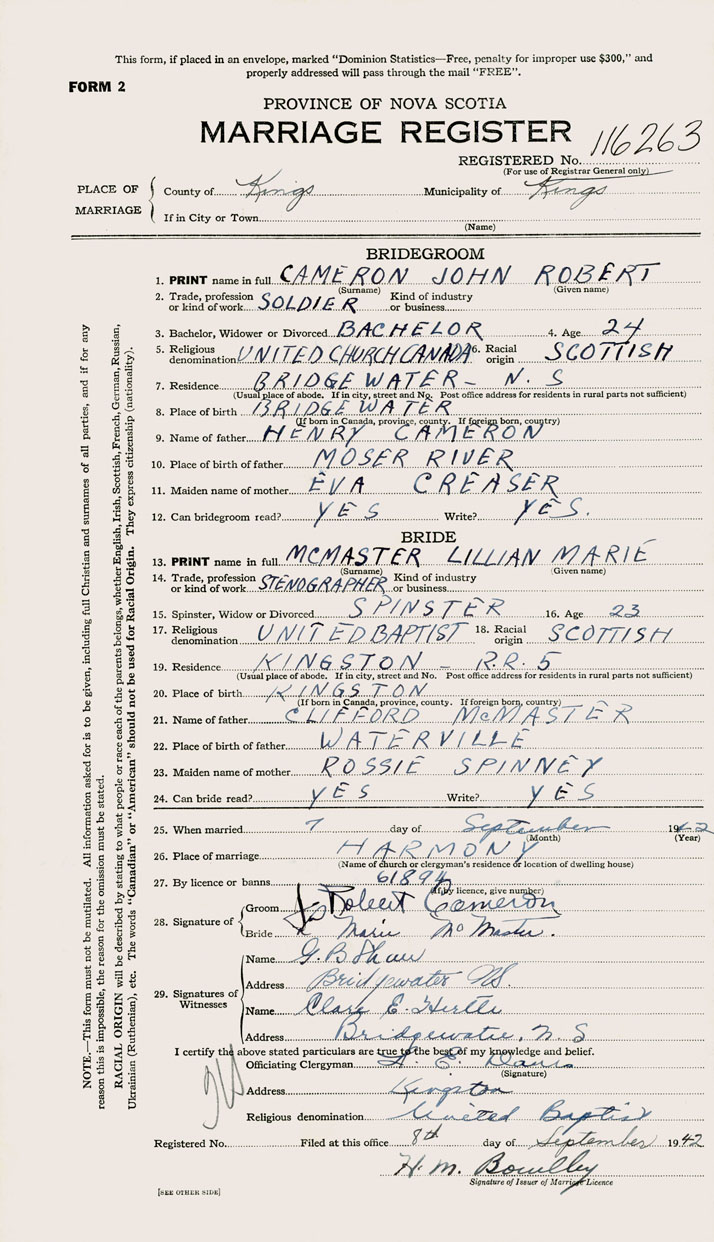 This form, if placed in an envelope, marked "Dominion Statistics—Free, penalty for improper use $300," and
properly addressed will pass through the mail "FREE".
FORM 2
PROVINCE OF NOVA SCOTIA
MARRIAGE REGISTER
REGISTERED No. 116263
(For use of Registrar General only)
PLACE OF MARRIAGE
County of Kings Municipality of Kings
If in City or Town
(Name)
BRIDEGROOM
1. PRINT name in full CAMERON JOHN ROBERT
(Surname) (Given name)
2. Trade, profession or kind of work SOLDIER Kind of industry or business
3. Bachelor, Widower or Divorced BACHELOR 4. Age 24
5. Religious denomination UNITED CHURCH CANADA 6. Racial origin SCOTTISH
7. Residence BRIDGEWATER - N. S
(Usual place of abode. If in city, street and No. Post office address for residents in rural parts not sufficient)
8. Place of birth BRIDGEWATER
(If born in Canada, province, county. If foreign born, country)
9. Name of father HENRY CAMERON
10. Place of birth of father MOSER RIVER
11. Maiden name of mother EVA CREASER
12. Can bridegroom read? YES Write? YES.
BRIDE
13. PRINT name in full MCMASTER LILLIAN MARIE
(Surname) (Given name)
14. Trade, profession or kind of work STENOGRAPHER Kind of industry or business
15. Spinster, Widow or Divorced SPINSTER 16. Age 23
17. Religious denomination UNITED BAPTIST 18. Racial origin SCOTTISH
19. Residence KINGSTON - R.R. 5
(Usual place of abode. If in city, street and No. Post office address for residents in rural parts not sufficient)
20. Place of birth KINGSTON
(If born in Canada, province, county. If foreign born, country)
21. Name of father CLIFFORD McMASTER
22. Place of birth of father WATERVILLE
23. Maiden name of mother ROSSIE SPINNEY
24. Can bride read? YES Write? YES
25. When married 7 day of September 1942
(Month) (Year)
26. Place of marriage HARMONY
(Name of church or clergyman's residence or location of dwelling house)
27. By licence or banns 61894
(If by licence, give number)
28. Signature of
Groom J. Robert Cameron
Bride Marie McMaster.
29. Signatures of Witnesses
Name G. B Shaw
Address Bridgewater NS.
Name Clare E. Hirtle
Address Bridgewater, N. S
I certify the above stated particulars are true to the best of my knowledge and belief.
Officiating Clergyman A. E.
(Signature)
Address Kingston
Religious denomination United Baptist
Registered No. Filed at this office 8th day of September 1942
H. M.
Signature of Issuer of Marriage Licence
[SEE OTHER SIDE]
NOTE.—This form must not be mutilated. All information asked for is to be given, including full Christian and surnames of all parties, and if for any
reason this is impossible, the reason for the omission must be stated.
RACIAL ORIGIN will be described by stating to what people or race each of the parents belongs, whether English, Irish, Scottish, French, German, Russian,
Ukrainian (Ruthenian), etc. The words "Canadian" or "American" should not be used for Racial Origin. They express citizenship (nationality).